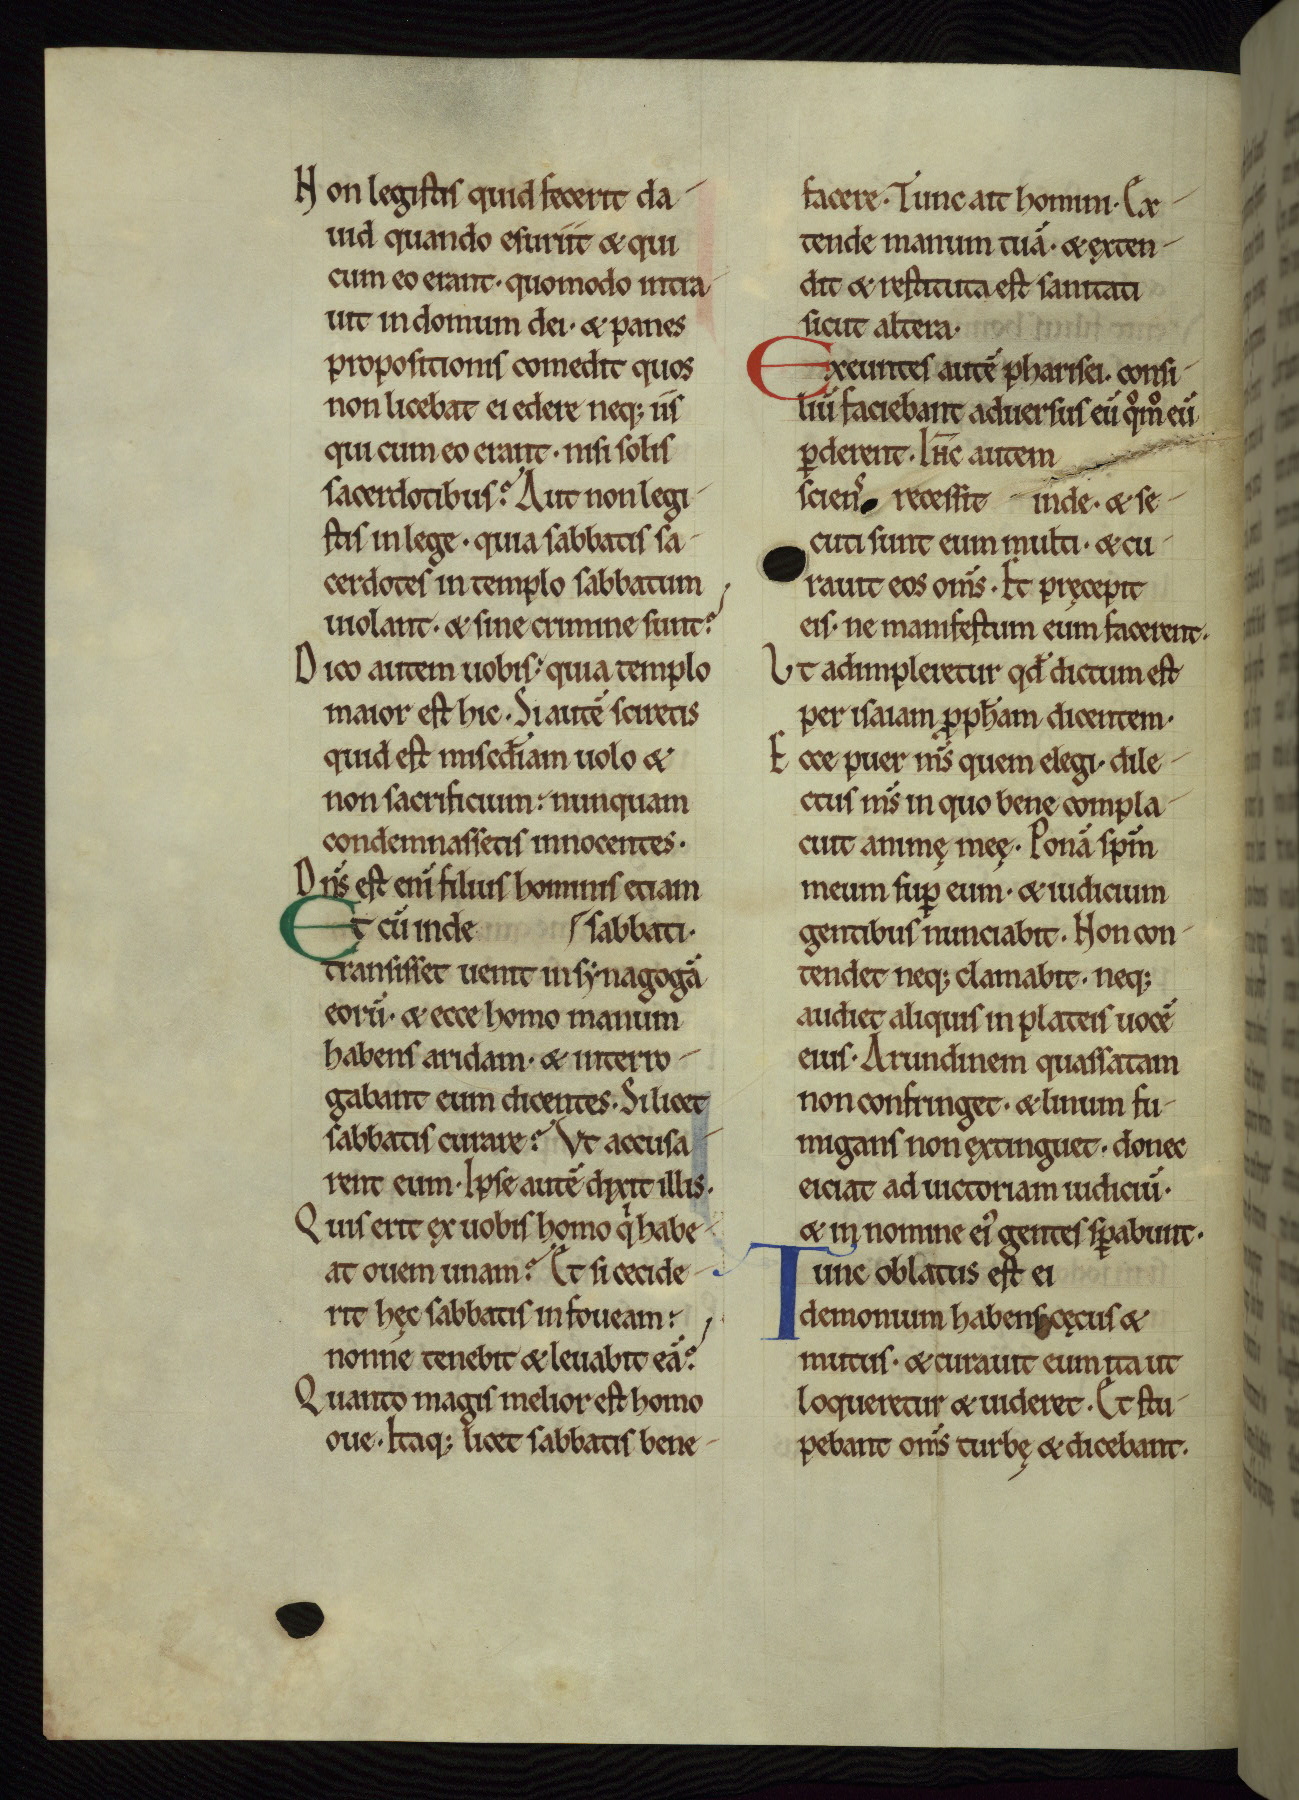 Non legistis quid fecerit da-
uid quando esuriit & qui
cum eo erant· quomodo intra-
uit in domum dei· & panes
propositionis comedit quos
non licebat ei edere neq; iis
qui cum eo erant· nisi solis
sacerdotibus? Aut non legi-
stis in lege· quia sabbatis sa-
cerdotes in templo sabbatum
uiolant· & sine crimine sunt?
Dico autem uobis· quia templo
maior est hic· Si autē sciretis
quid est mised̄iam uolo &
non sacrificium· nunquam
condemnassetis innocentes·
Dn̄s est enī filius hominis etiam
Et cū inde sabbati·
transisset uenit in synagogā
eorū· & ecce homo manum
habens aridam· & interro-
gabant eum dicentes· Si licet
sabbatis curare? Vt accusa-
rent eum· Ipse autē dixit illis·
Quis erit ex uobis homo q̇ habe-
at ouem unam? Et si cecide-
rit hęc sabbatis in foueam·
nonne tenebit & leuabit eā?
Quanto magis melior est homo
oue· Itaq; licet sabbatis bene-
facere· Tunc ait homini· Ex-
tende manum tuā· & exten-
dit & restituta est sanitati
sicut altera·
Exeuntes autē pharisei· consi-
liū faciebant aduersus eū qͦmͦ eū
ꝑderent· Ih̄c autem
sciens recessit inde· & se-
cuti sunt eum multi· & cu-
rauit eos om̄s· Et pręcepit
eis· ne manifestum eum facerent·
Vt adimpleretur qd̄ dictum est
per isaiam ꝓph̄am dicentem·
Ecce puer m̄s quem elegi· dile-
ctus m̄s in quo bene compla-
cuit animę meę· Ponā sp̄m
meum suꝑ eum· & iudicium
gentibus nunciabit· Non con-
tendet neq; clamabit· neq;
audiet aliquis in plateis uocē
eius· Arundinem quassatam
non confringet· & linum fu-
migans non extinguet· donec
eiciat ad uictoriam iudiciū·
& in nomine ei᾽ gentes sꝑabunt·
Tunc oblatus est ei
demonium habens cęcus &
mutus· & curauit eum ita ut
loqueretur & uideret· Et stu-
pebant om̄s turbę & dicebant·